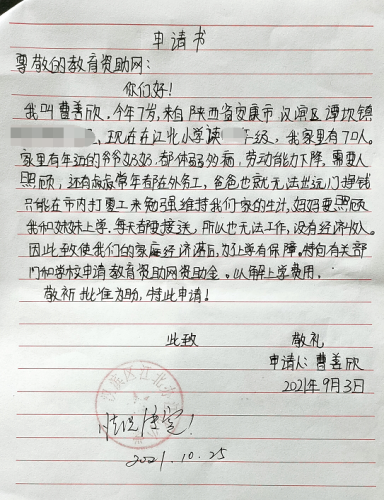 申请书
尊敬的教育资助网:
你们好!
我叫曹善欣. 今年7岁, 来自陕西省安康市汉滨区谭坝镇
现在在江北小学读 年级, 我家里有7口人。
家里有年迈的爷爷奶奶, 都体弱多病, 劳动能力下降, 需要人
照顾, 还有叔叔常年都在外务工, 爸爸也就无法出远门挣钱
只能在市内打零工来勉强维持我们一家的生计, 妈妈要照顾
我和妹妹上学, 每天都要接送, 所以也无法工作, 没有经济收入。
因此致使我们的家庭经济落后, 为让学有保障, 特向有关部
门和学校申请教育资助网资助金。以解上学费用.
敬祈批准为助, 特此申请!
此致 敬礼
申请人: 曹善欣
2021年9月3日
情况属实!
2021.10.25